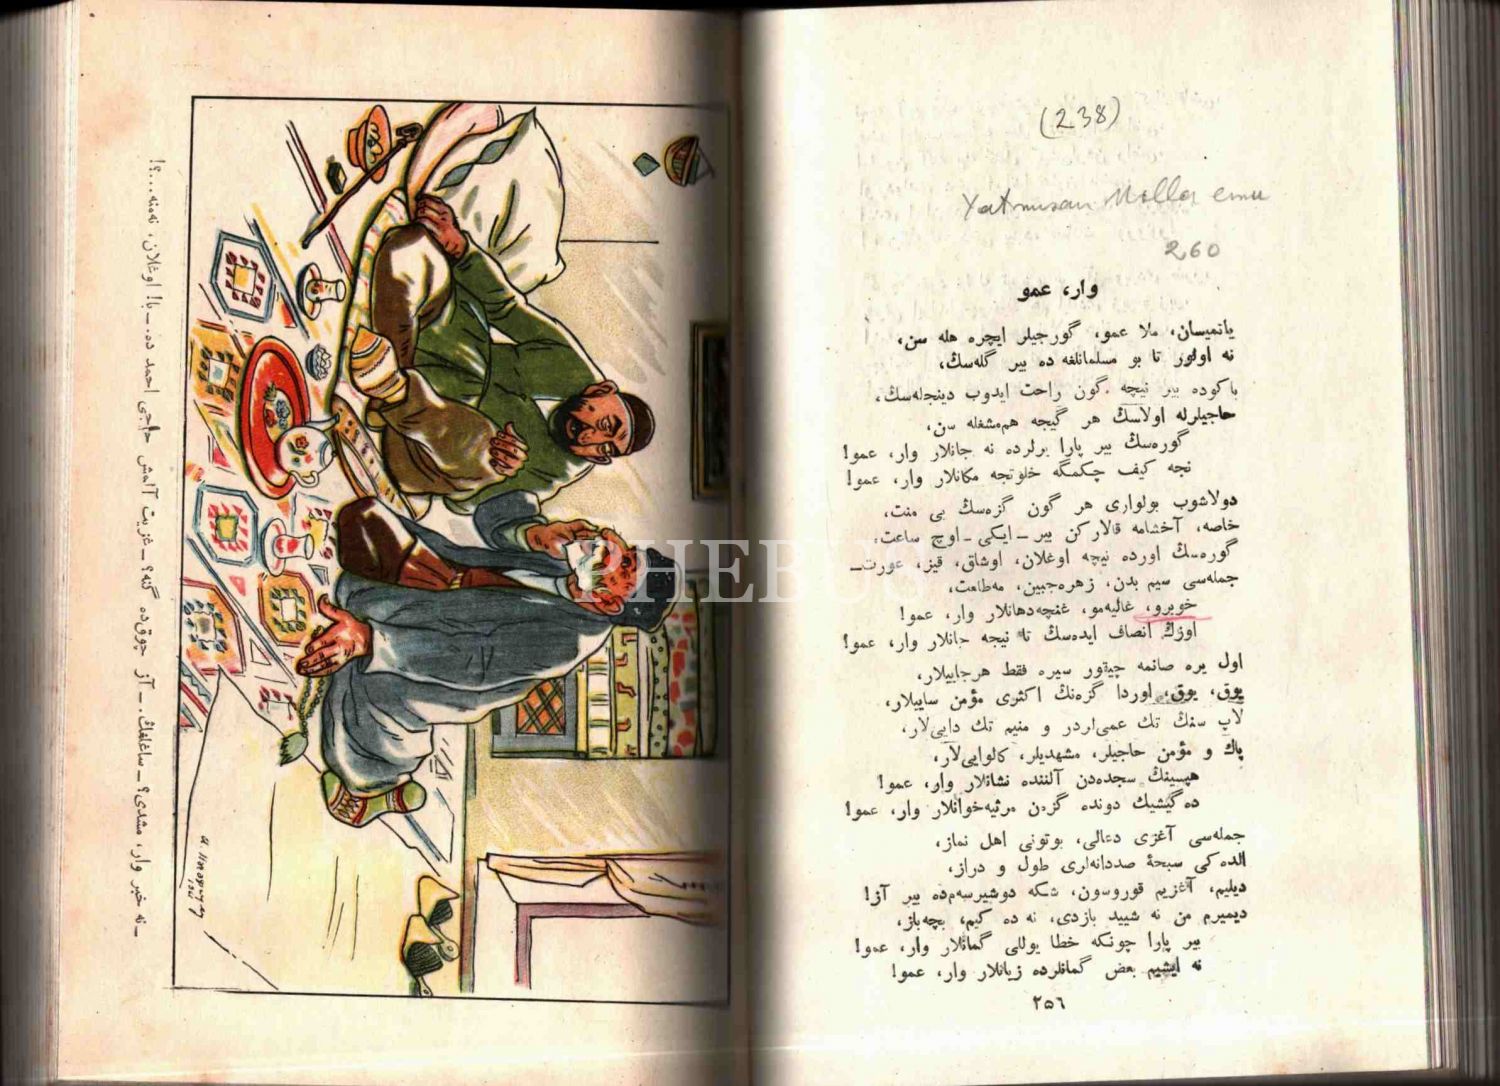 (238)
Yatmısan Molla emu
260
وار، عمو
یاتمیسان، ملا عمو، گورجیلر ایچره هله سن،
نه اولور تا بو مسلمانلغه ده بیر گله‌سڭ،
باکوده بیر نیچه گون راحت ایدوب دینجله‌سڭ،
حاجیلرله اولاسڭ هر گیجه هم‌مشغله سن،
گوره‌سڭ بیر پارا برلرده نه جانلار وار، عمو!
نجه کیف چکمگه خلوتجه مکانلار وار، عمو!
دولاشوب بولواری هر گون گزه‌سڭ بی منت،
خاصه، آخشامه قالارکن بیر ــ ایکی ــ اوچ ساعت،
گوره‌سڭ اورده نیچه اوغلان، اوشاق، قیز، عورت ــ
جمله‌سی سیم بدن، زهره‌جبین، مه‌طلعت،
خوبرو، غالیه‌مو، غنچه‌دهانلار وار، عمو!
اوزڭ انصاف ایده‌سڭ تا نیجه جانلار وار، عمو!
اول یره صانمه چیقور سیره فقط هرجاییلار،
یوق، یوق، اوردا گزه‌نڭ اکثری مؤمن ساییلار،
لاپ سنڭ تك عمی‌لردر و منیم تك دایی‌لار،
پاك و مؤمن حاجیلر، مشهدیلر، کالوایی‌لار،
هپسینڭ سجده‌دن آلننده نشانلار وار، عمو!
ده‌گیشیك دونده گزه‌ن مرثیه‌خوانلار وار، عمو!
جمله‌سی آغزی دعالی، بوتونی اهل نماز،
الده‌کی سبحهٔ صددانه‌لری طول و دراز،
دیلیم، آغزیم قوروسون، شکه دوشیرسه‌م‌ده بیر آز!
دیمیرم من نه شیید بازدی، نه ده کیم، بچه‌باز،
بیر پارا چونکه خطا یوللی گمانلار وار، عمو!
نه ایشیم بعض گمانلرده زیانلار وار، عمو!
٢٥٦
ــ نه خبر وار، مشدی؟ ــ ساغلغڭ. ــ آز چوق‌ده گنه؟ ــ غزیت آلمش حاجی احمد ده. ــ با! اوغلان، نه‌منه...؟!
PHEBUS